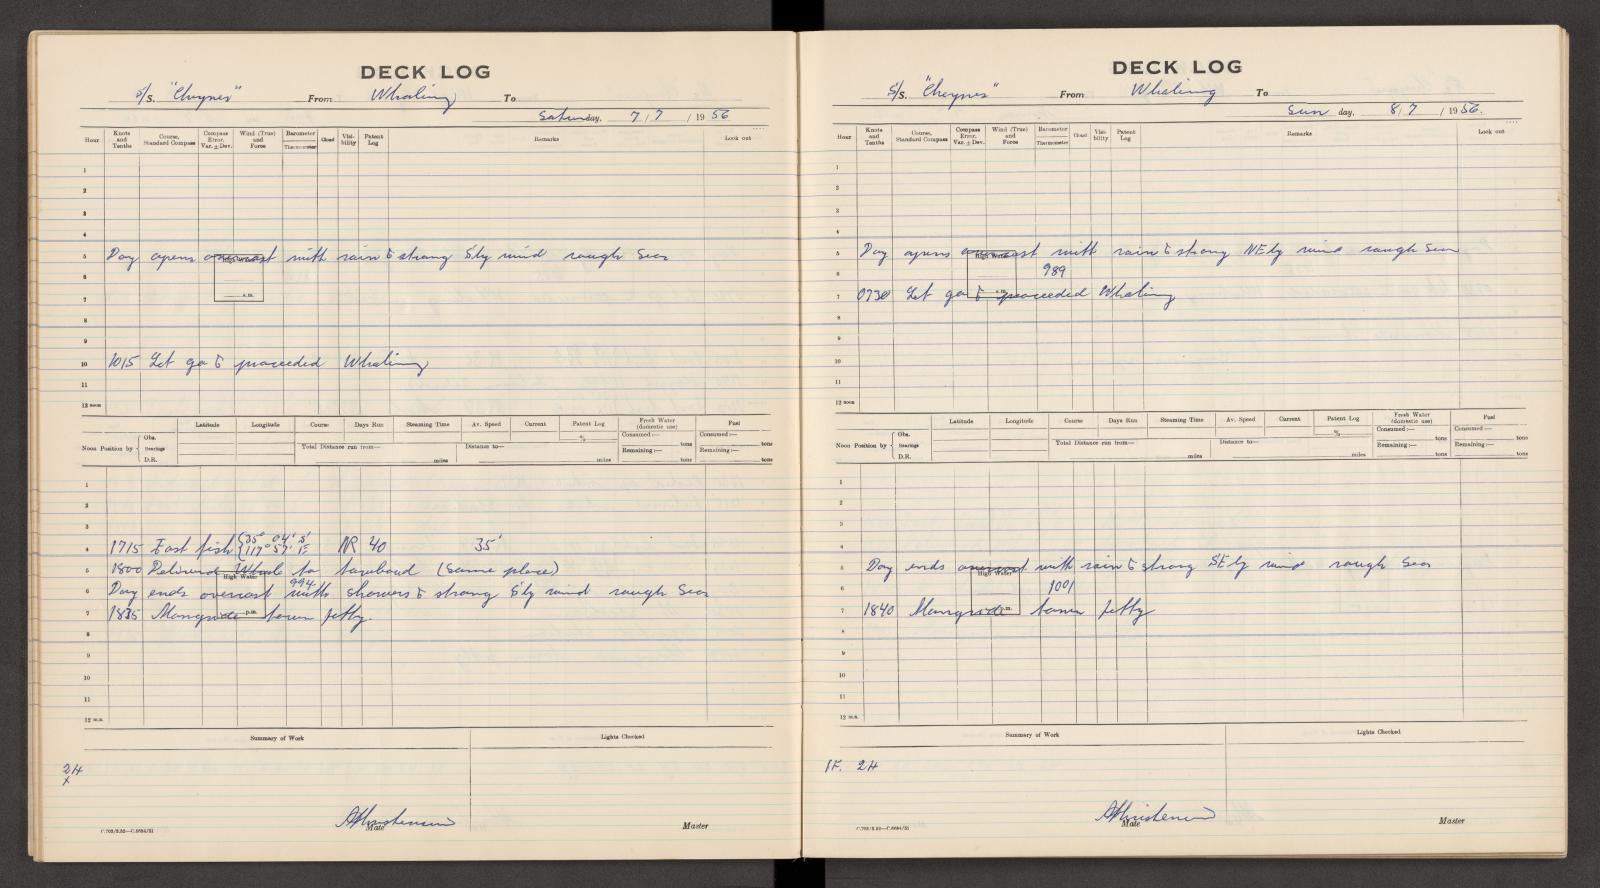 DECK LOG
S/S. "Cheynes" From Whaling To
Saturday, 7/7/1956
Hour Knots and Tenths Course, Standard Compass Compass Error. Var. ± Dev. Wind (True) and Force Barometer Thermometer Cloud Visibility Patent Log Remarks Look out
1
2
3
4
5 Day opens overcast with rain & strong S'ly wind rough Sea
High Water
6
7
a.m.
8
9
10 1015 Let go & proceeded Whaling
11
12 noon
Latitude Longitude Course Days Run Steaming Time Av. Speed Current Patent Log % Fresh Water (domestic use) Fuel
Noon Position by { Obs. Bearings D.R.
Total Distance run from— miles Distance to— miles
Consumed:— tons Consumed:— tons
Remaining:— tons Remaining:— tons
1
2
3
4 1715 Fast fish { 35° 04' S' 117° 57' E NR 40 35'
5 1800 Delivered Whale to towboat (same place)
High Water
994
6 Day ends overcast with showers & strong S'ly wind rough Sea
7 1835 Alongside town jetty.
p.m.
8
9
10
11
12 m.n.
Summary of Work Lights Checked
2H
x
AChristensen
Mate Master
C.702/5.52—C.8684/51
DECK LOG
S/S. "Cheynes" From Whaling To
Sun day, 8/7/1956.
Hour Knots and Tenths Course, Standard Compass Compass Error. Var. ± Dev. Wind (True) and Force Barometer Thermometer Cloud Visibility Patent Log Remarks Look out
1
2
3
4
5 Day opens overcast with rain & strong NEly wind rough Sea
High Water
6 989
7 0730 Let go & proceeded Whaling
a.m.
8
9
10
11
12 noon
Latitude Longitude Course Days Run Steaming Time Av. Speed Current Patent Log % Fresh Water (domestic use) Fuel
Noon Position by { Obs. Bearings D.R.
Total Distance run from— miles Distance to— miles
Consumed:— tons Consumed:— tons
Remaining:— tons Remaining:— tons
1
2
3
4
5 Day ends overcast with rain & strong SEly wind rough Sea
High Water
6 1001
7 1840 Alongside town jetty
p.m.
8
9
10
11
12 m.n.
Summary of Work Lights Checked
1F. 2H
AChristensen
Mate Master
C.702/5.52—C.8684/51